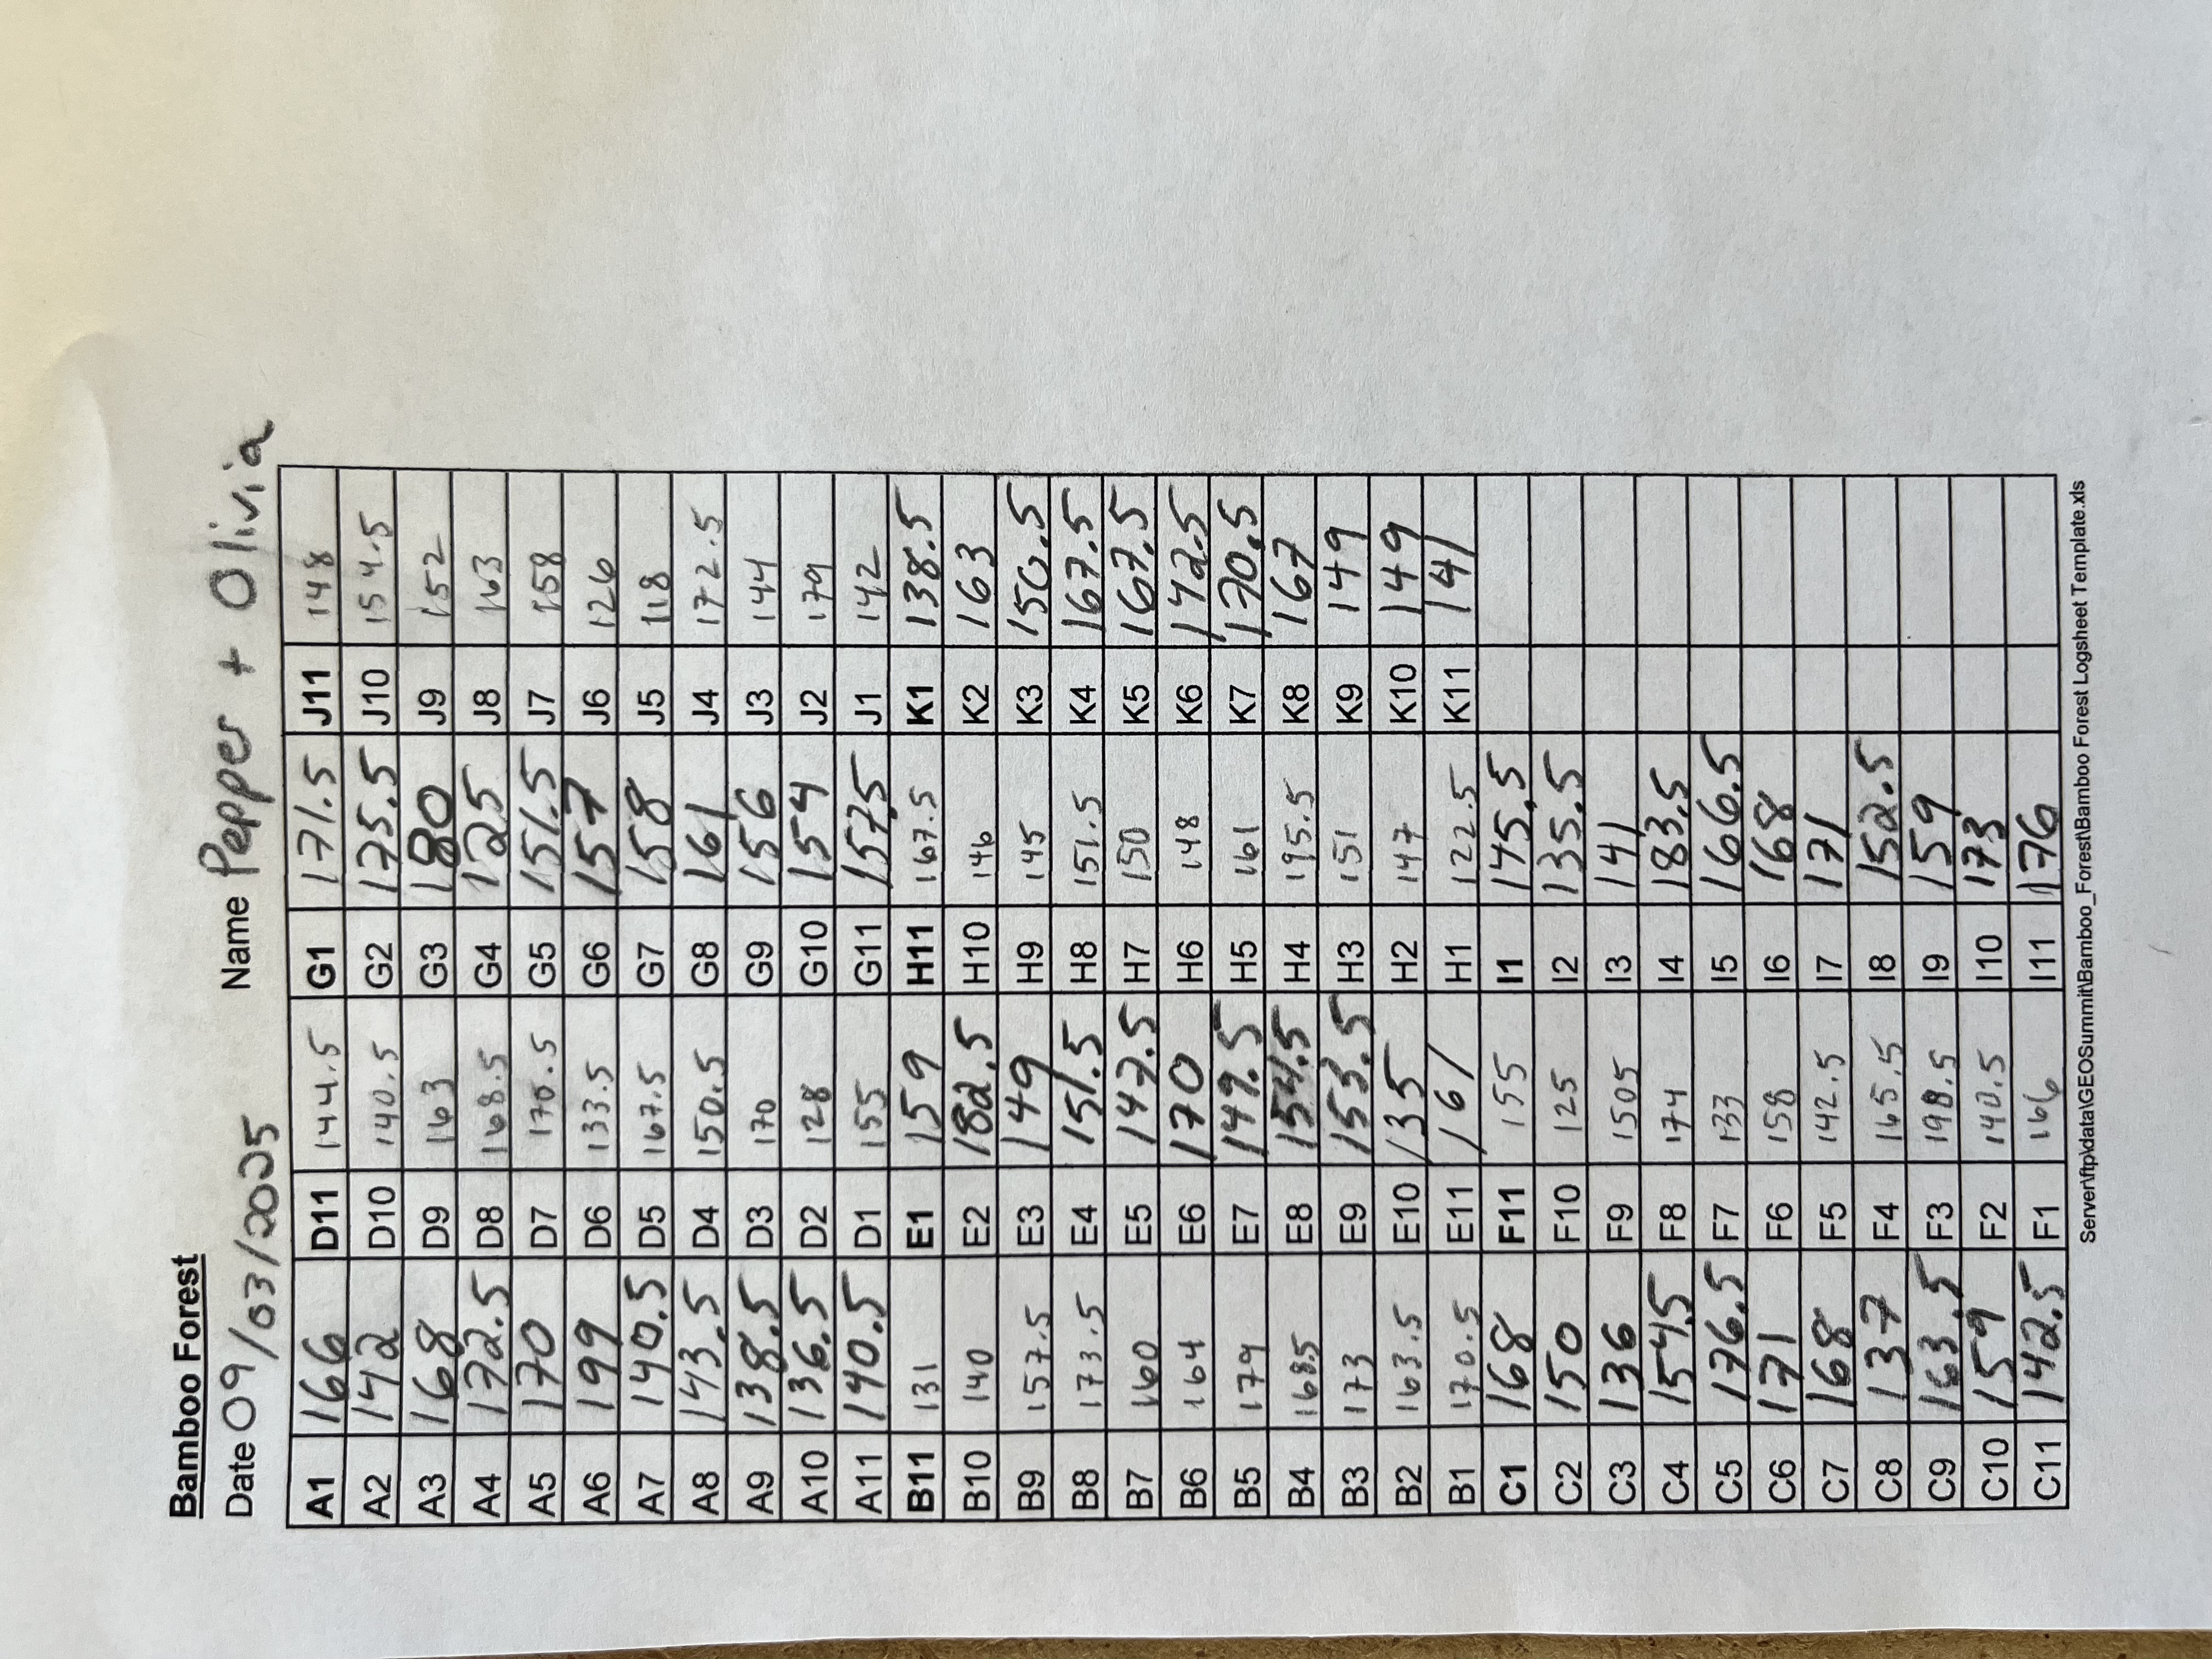 Bamboo Forest
Date 09/03/2025 Name Pepper + Olivia
A1 166 D11 144.5 G1 171.5 J11 148
A2 142 D10 140.5 G2 175.5 J10 154.5
A3 168 D9 163 G3 180 J9 152
A4 172.5 D8 168.5 G4 125 J8 163
A5 170 D7 170.5 G5 151.5 J7 158
A6 199 D6 133.5 G6 157 J6 126
A7 140.5 D5 167.5 G7 158 J5 118
A8 143.5 D4 150.5 G8 161 J4 172.5
A9 138.5 D3 170 G9 156 J3 144
A10 136.5 D2 128 G10 154 J2 179
A11 140.5 D1 155 G11 157.5 J1 142
B11 131 E1 159 H11 167.5 K1 138.5
B10 140 E2 182.5 H10 146 K2 163
B9 157.5 E3 149 H9 145 K3 150.5
B8 173.5 E4 151.5 H8 151.5 K4 167.5
B7 160 E5 147.5 H7 150 K5 167.5
B6 164 E6 170 H6 148 K6 142.5
B5 179 E7 149.5 H5 161 K7 170.5
B4 168.5 E8 154.5 H4 195.5 K8 167
B3 173 E9 153.5 H3 151 K9 149
B2 163.5 E10 135 H2 147 K10 149
B1 170.5 E11 161 H1 122.5 K11 141
C1 168 F11 155 I1 145.5
C2 150 F10 125 I2 135.5
C3 136 F9 150.5 I3 141
C4 154.5 F8 174 I4 183.5
C5 176.5 F7 133 I5 166.5
C6 171 F6 158 I6 168
C7 168 F5 142.5 I7 171
C8 137 F4 165.5 I8 152.5
C9 163.5 F3 198.5 I9 159
C10 159 F2 140.5 I10 173
C11 142.5 F1 166 I11 176
Server\ftp\data\GEOSummit\Bamboo_Forest\Bamboo Forest Logsheet Template.xls